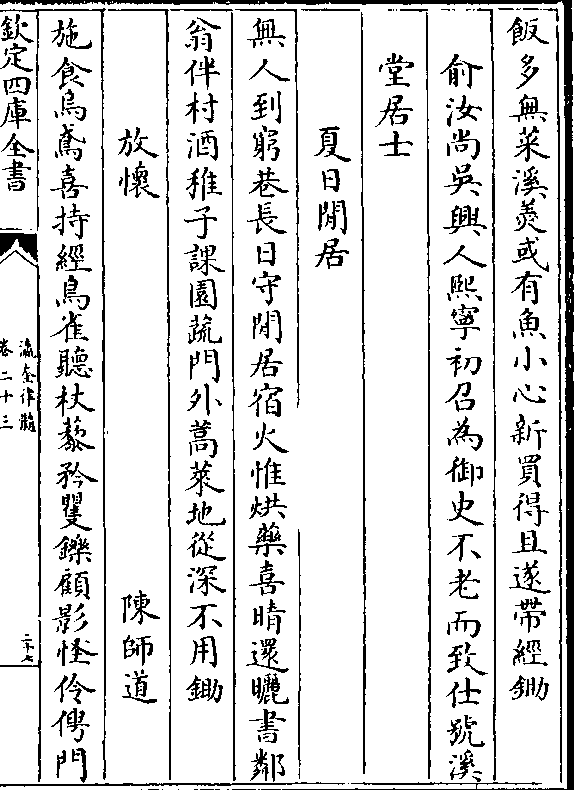 飯多無菜溪羮或有魚小心新買得且遂帶經鋤
俞汝尚吳興人熙寧初召為御史不老而致仕號溪
堂居士
夏日閒居
無人到窮巷長日守閒居宿火惟烘藥喜晴還曬書鄰
翁伴村酒稚子課園蔬門外蒿萊地從深不用鋤
放懷 陳師道
施食烏鳶喜持經鳥雀聽杖藜矜矍鑠顧影怪伶俜門
欽定四庫全書
瀛奎律髓
卷二十三
二十七